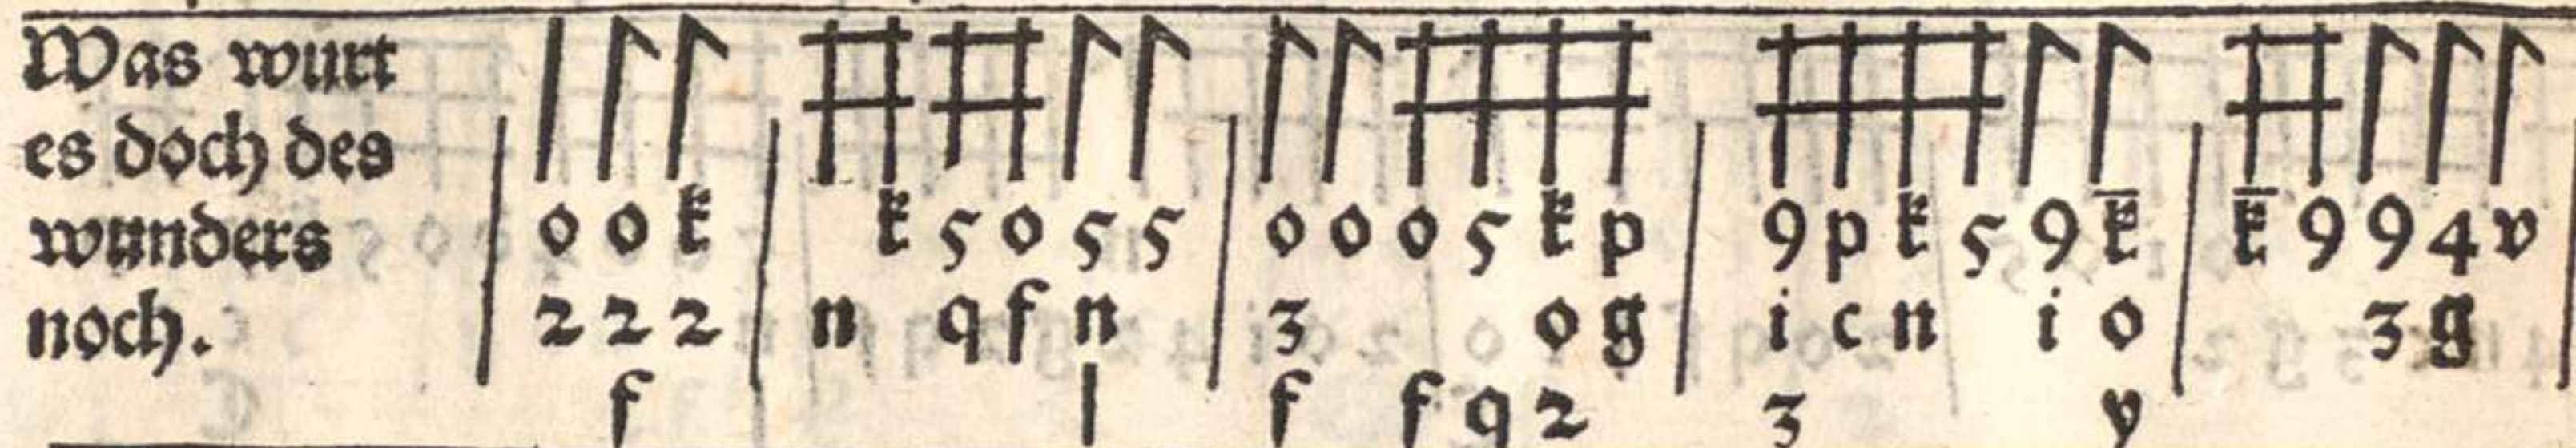 Was wurt
es doch des
wunders
noch.
o o k k 5 o 5 5 o o o 5 k p 9 p k 5 9 k̅ k̅ 9 9 4 v
2 2 2 n q f n 3 o g i c n i o 3 g
f l f f q 2 3 y